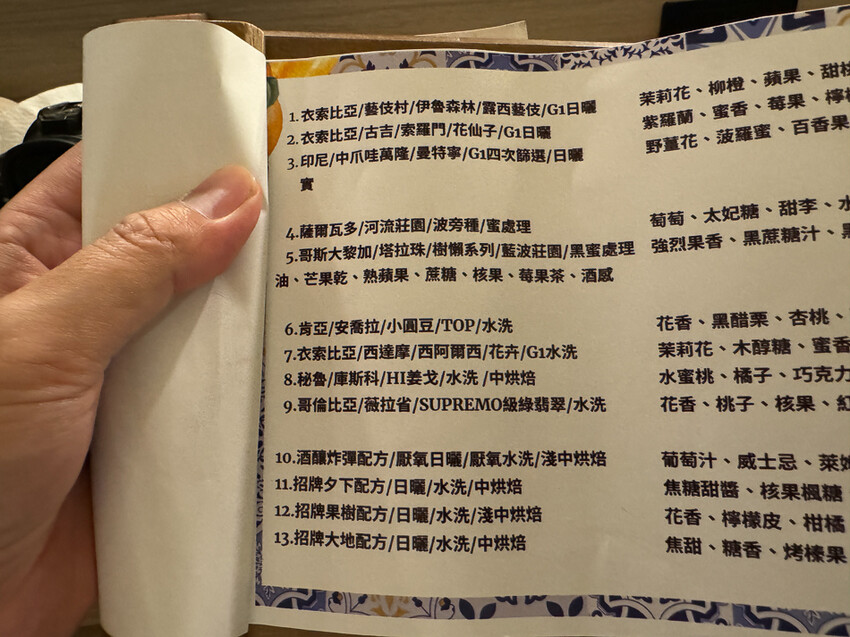 1.衣索比亞/藝伎村/伊魯森林/露西藝伎/G1日曬 茉莉花、柳橙、蘋果、甜桃
2.衣索比亞/古吉/索羅門/花仙子/G1日曬 紫羅蘭、蜜香、莓果、檸檬
3.印尼/中爪哇萬隆/曼特寧/G1四次篩選/日曬 野薑花、菠羅蜜、百香果
實
4.薩爾瓦多/河流莊園/波旁種/蜜處理 葡萄、太妃糖、甜李、水
5.哥斯大黎加/塔拉珠/樹懶系列/藍波莊園/黑蜜處理 強烈果香、黑蔗糖汁、黑
油、芒果乾、熟蘋果、蔗糖、核果、莓果茶、酒感
6.肯亞/安喬拉/小圓豆/TOP/水洗 花香、黑醋栗、杏桃、
7.衣索比亞/西達摩/西阿爾西/花卉/G1水洗 茉莉花、木醇糖、蜜香
8.秘魯/庫斯科/HI姜戈/水洗 /中烘焙 水蜜桃、橘子、巧克力
9.哥倫比亞/薇拉省/SUPREMO級綠翡翠/水洗 花香、桃子、核果、紅
10.酒釀炸彈配方/厭氧日曬/厭氧水洗/淺中烘焙 葡萄汁、威士忌、萊姆
11.招牌夕下配方/日曬/水洗/中烘焙 焦糖甜醬、核果楓糖
12.招牌果樹配方/日曬/水洗/淺中烘焙 花香、檸檬皮、柑橘
13.招牌大地配方/日曬/水洗/中烘焙 焦甜、糖香、烤榛果